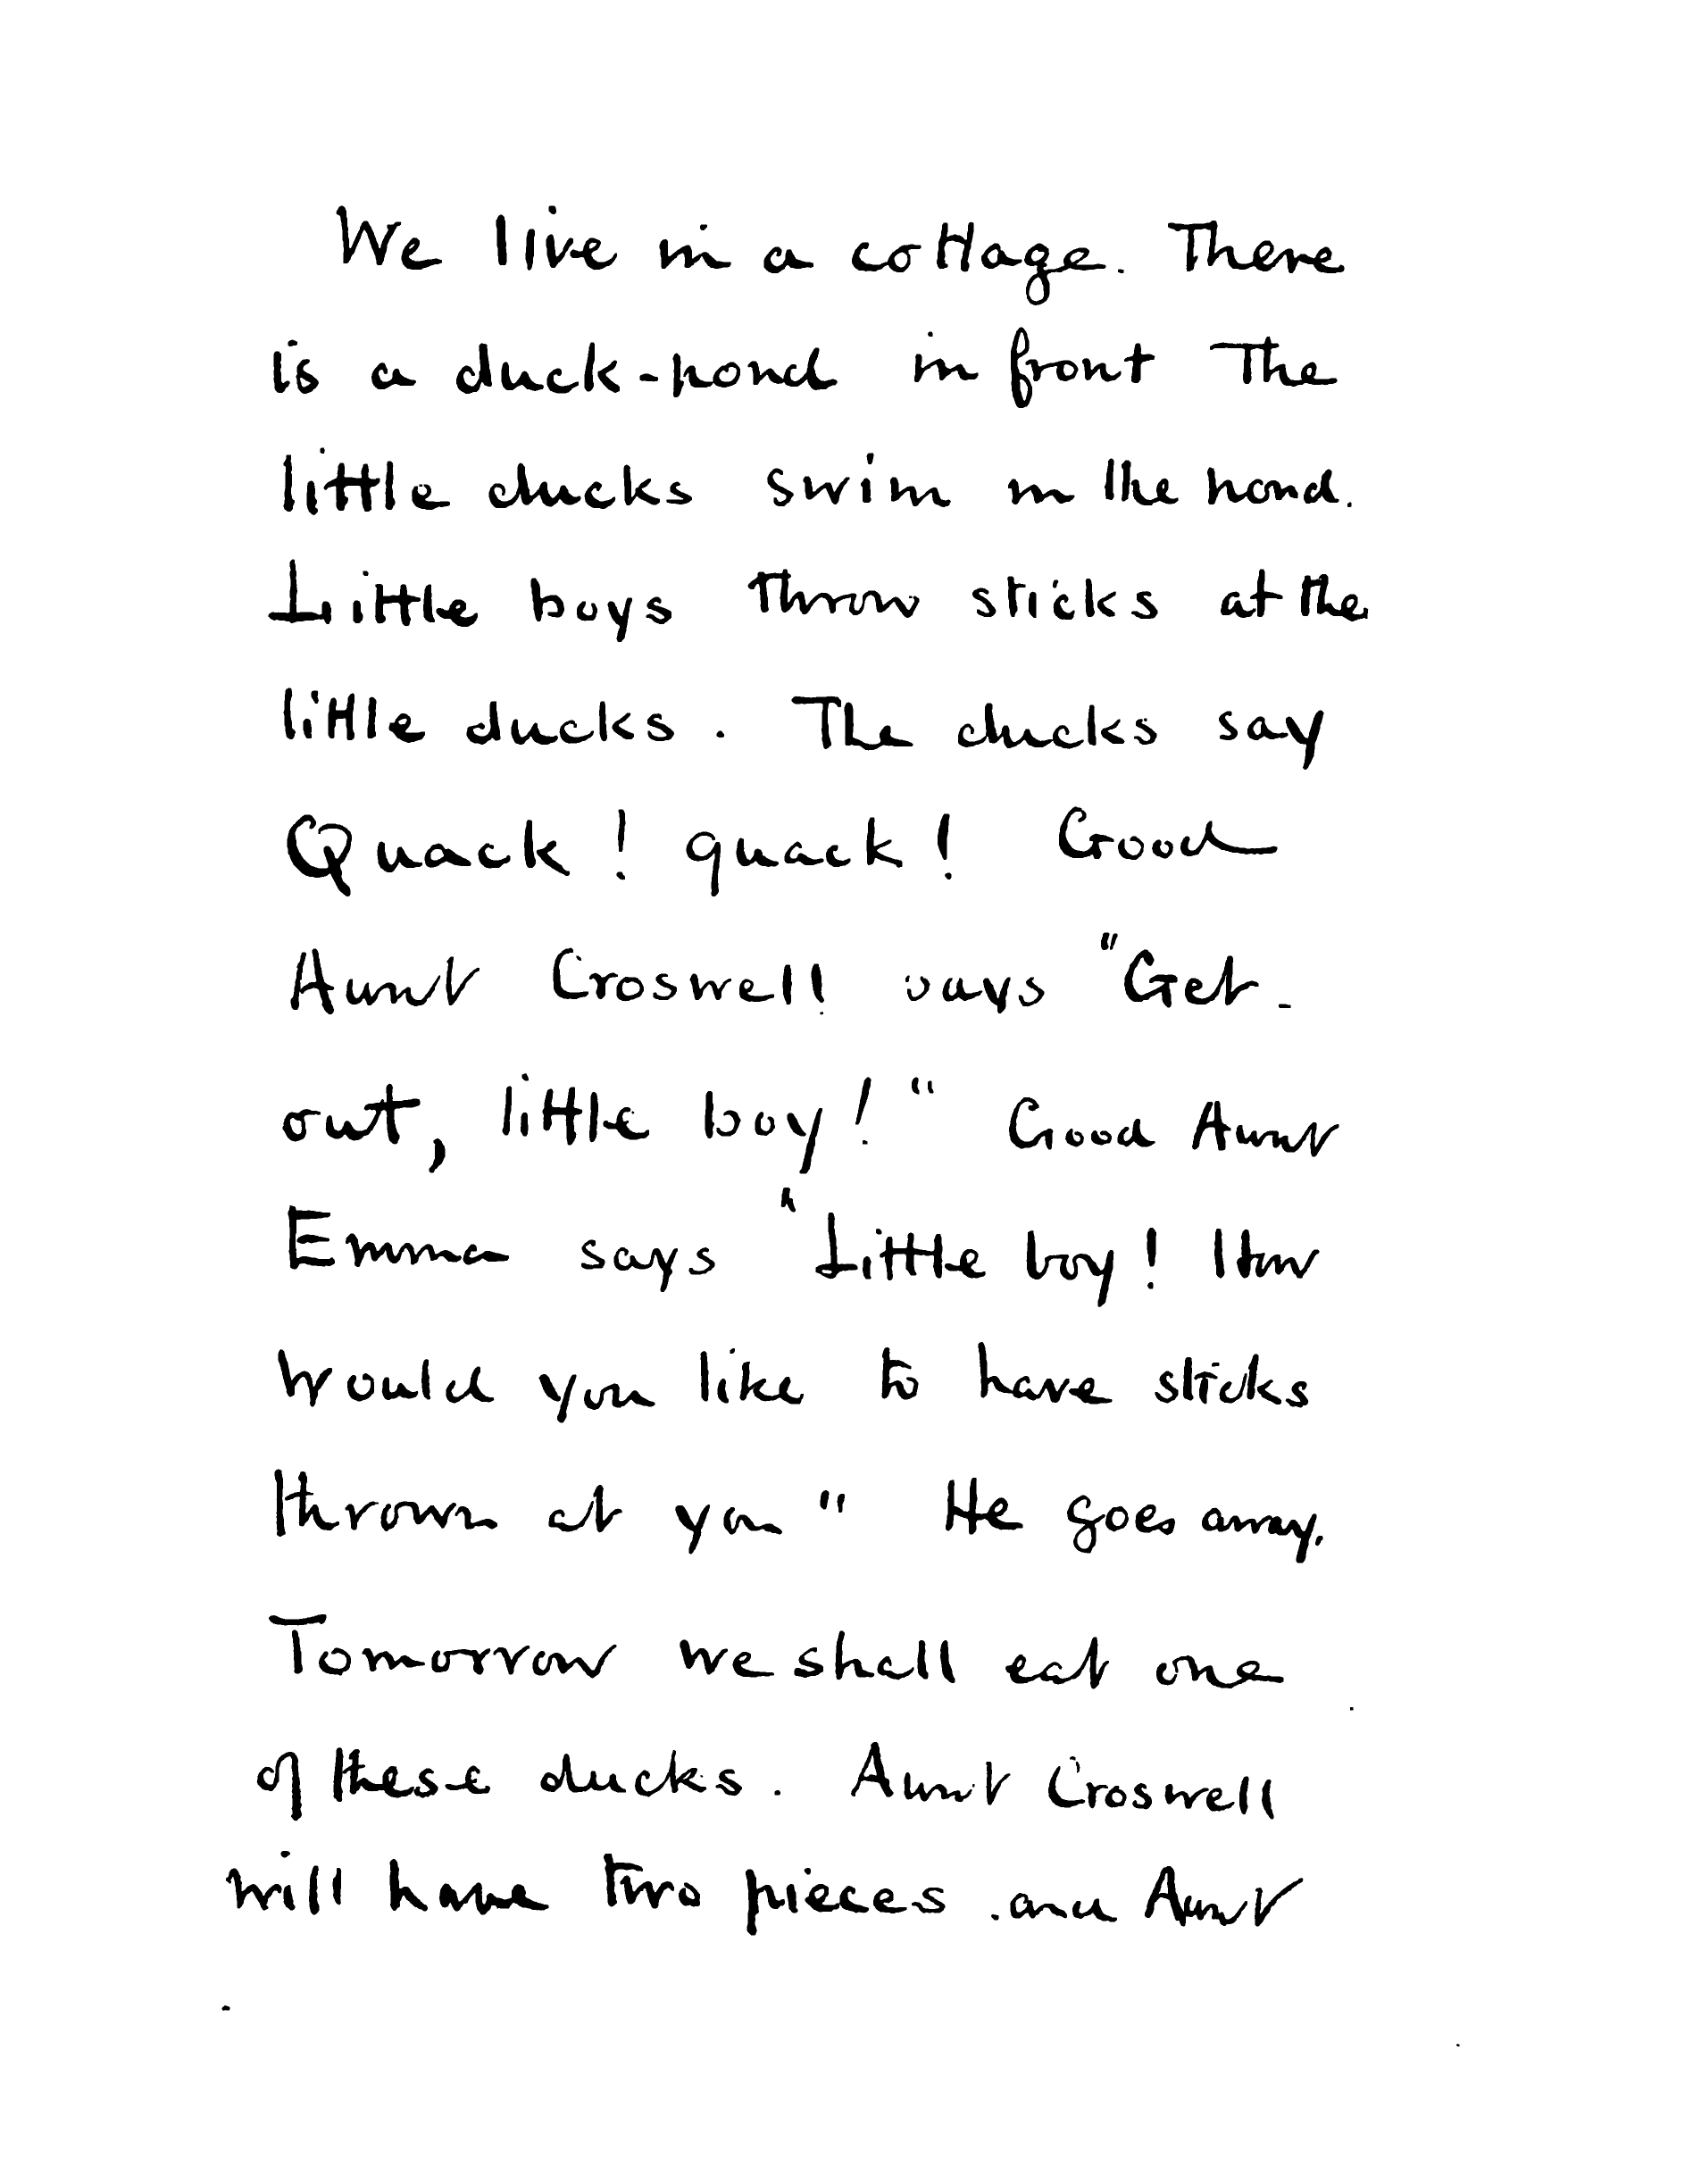 We live in a cottage. There
is a duck-pond in front The
little ducks swim in the pond.
Little boys throw sticks at the
little ducks. The ducks say
Quack! quack! Good
Aunt Croswell says "Get-
out, little boy!" Good Aunt
Emma says "Little boy! How
would you like to have sticks
thrown at you" He goes away.
Tomorrow we shall eat one
of these ducks. Aunt Croswell
will have two pieces and Aunt